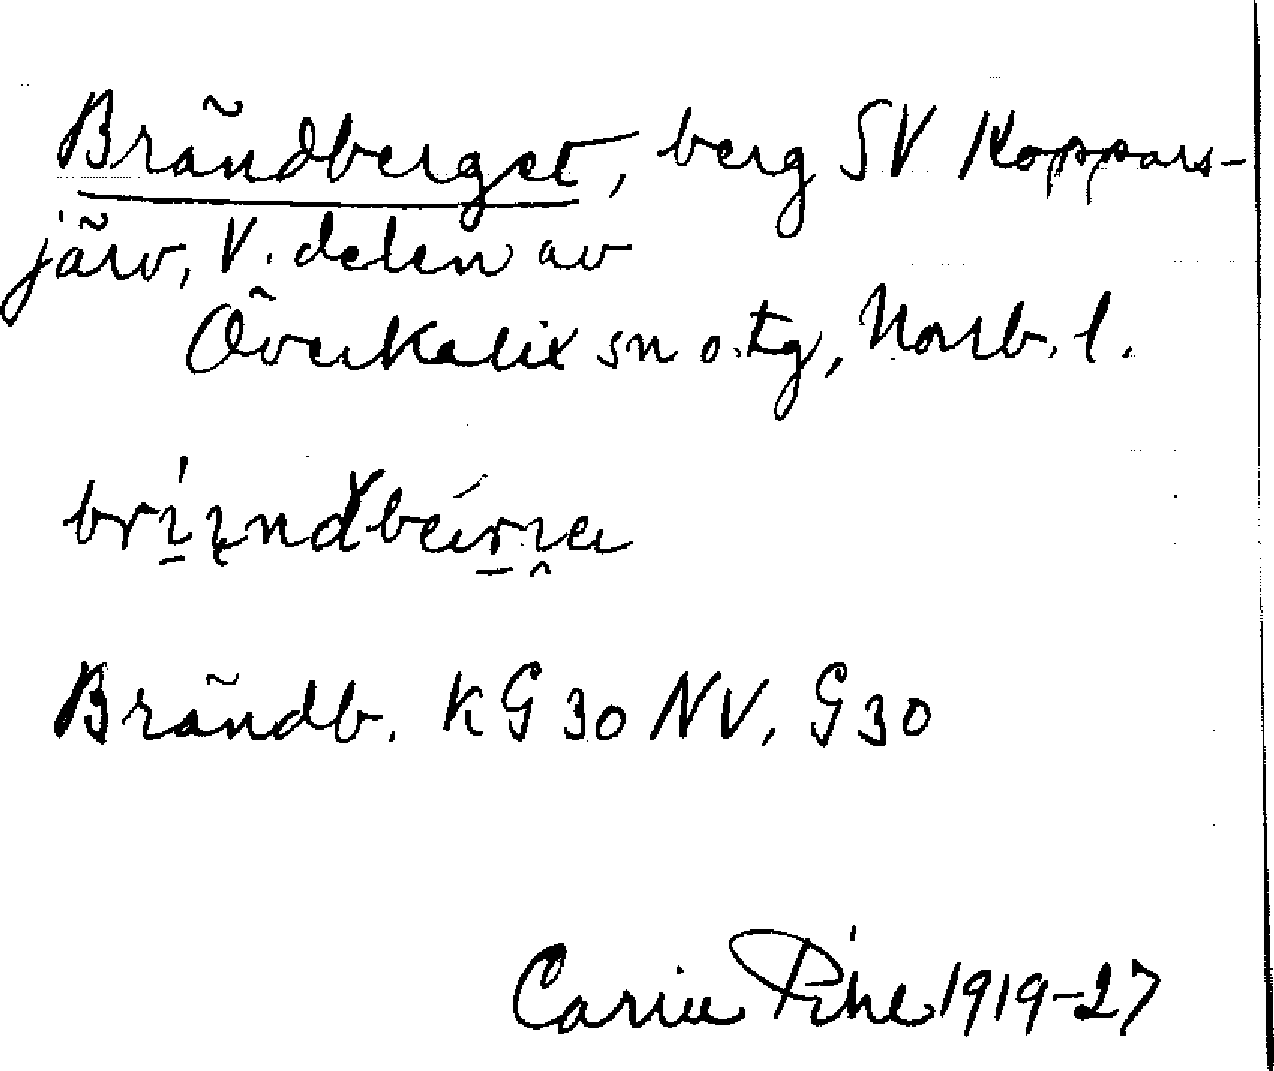 Brändberget, berg SV Koppars-
järv, V. delen av
Överkalix sn o. tg, Norrb. l.
Brändb. KG 30 NV, G 30
Carin Pihl 1919-27